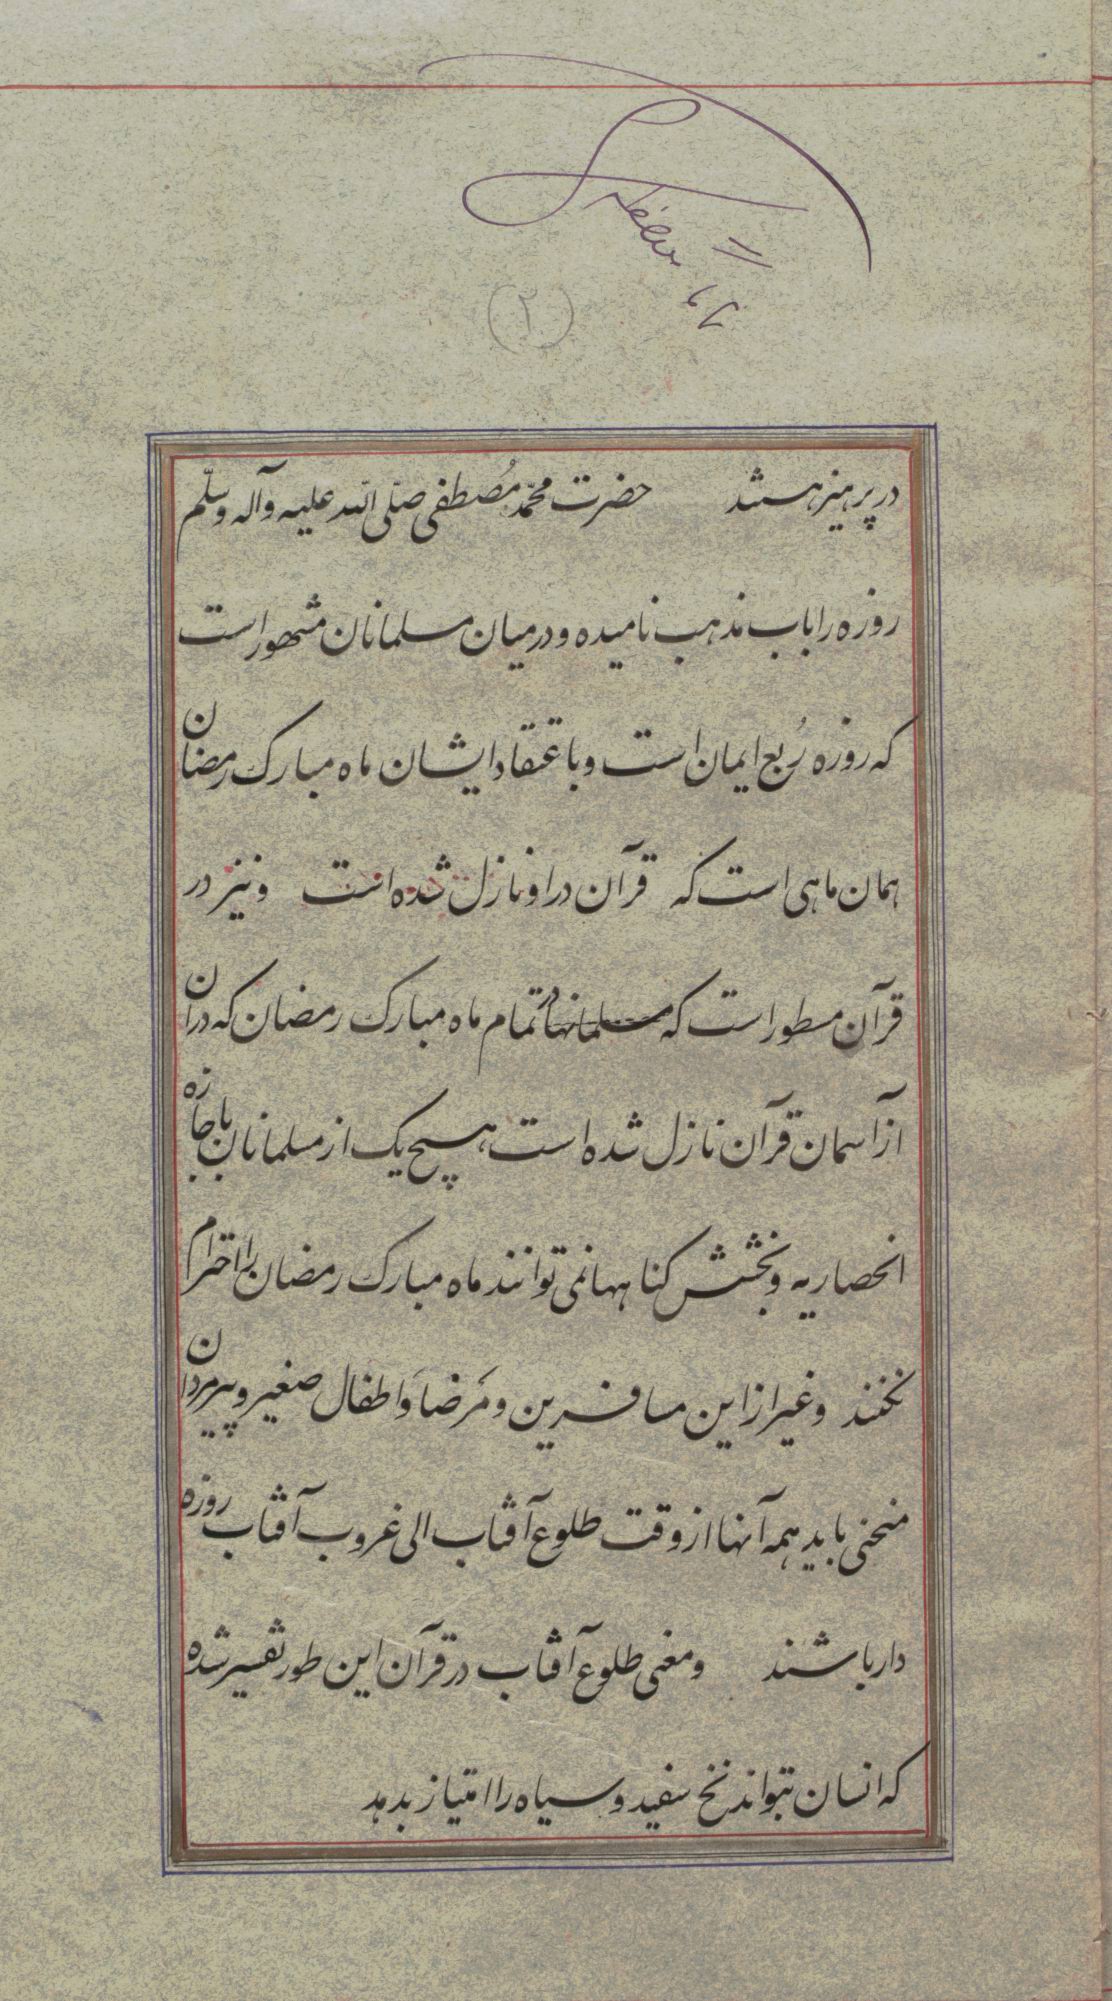 (۲)
در پرهیز هستند حضرت محمّد مُصطفی صلّی الله علیه وآله وسلّم
روزه را باب مذهب نامیده و در میان مسلمانان مشهور است
که روزه رُبع ایمان است و باعتقاد ایشان ماه مبارک رمضان
همان ماهی است که قرآن در او نازل شده است و نیز در
قرآن مسطور است که مسلمانها در تمام ماه مبارک رمضان که در آن
از آسمان قرآن نازل شده است هیچ یک از مسلمانان باجازه
انحصاریه و بخشش کناهها نمی توانند ماه مبارک رمضان را احترام
نکنند و غیر از این مسافرین و مَرضا وَ اطفال صغیر و پیر مردان
منحنی باید همه آنها از وقت طلوع آفتاب الی غروب آفتاب روزه
دار باشند و معنی طلوع آفتاب در قرآن این طور تفسیر شده
که انسان بتواند نخ سفید و سیاه را امتیاز بدهد